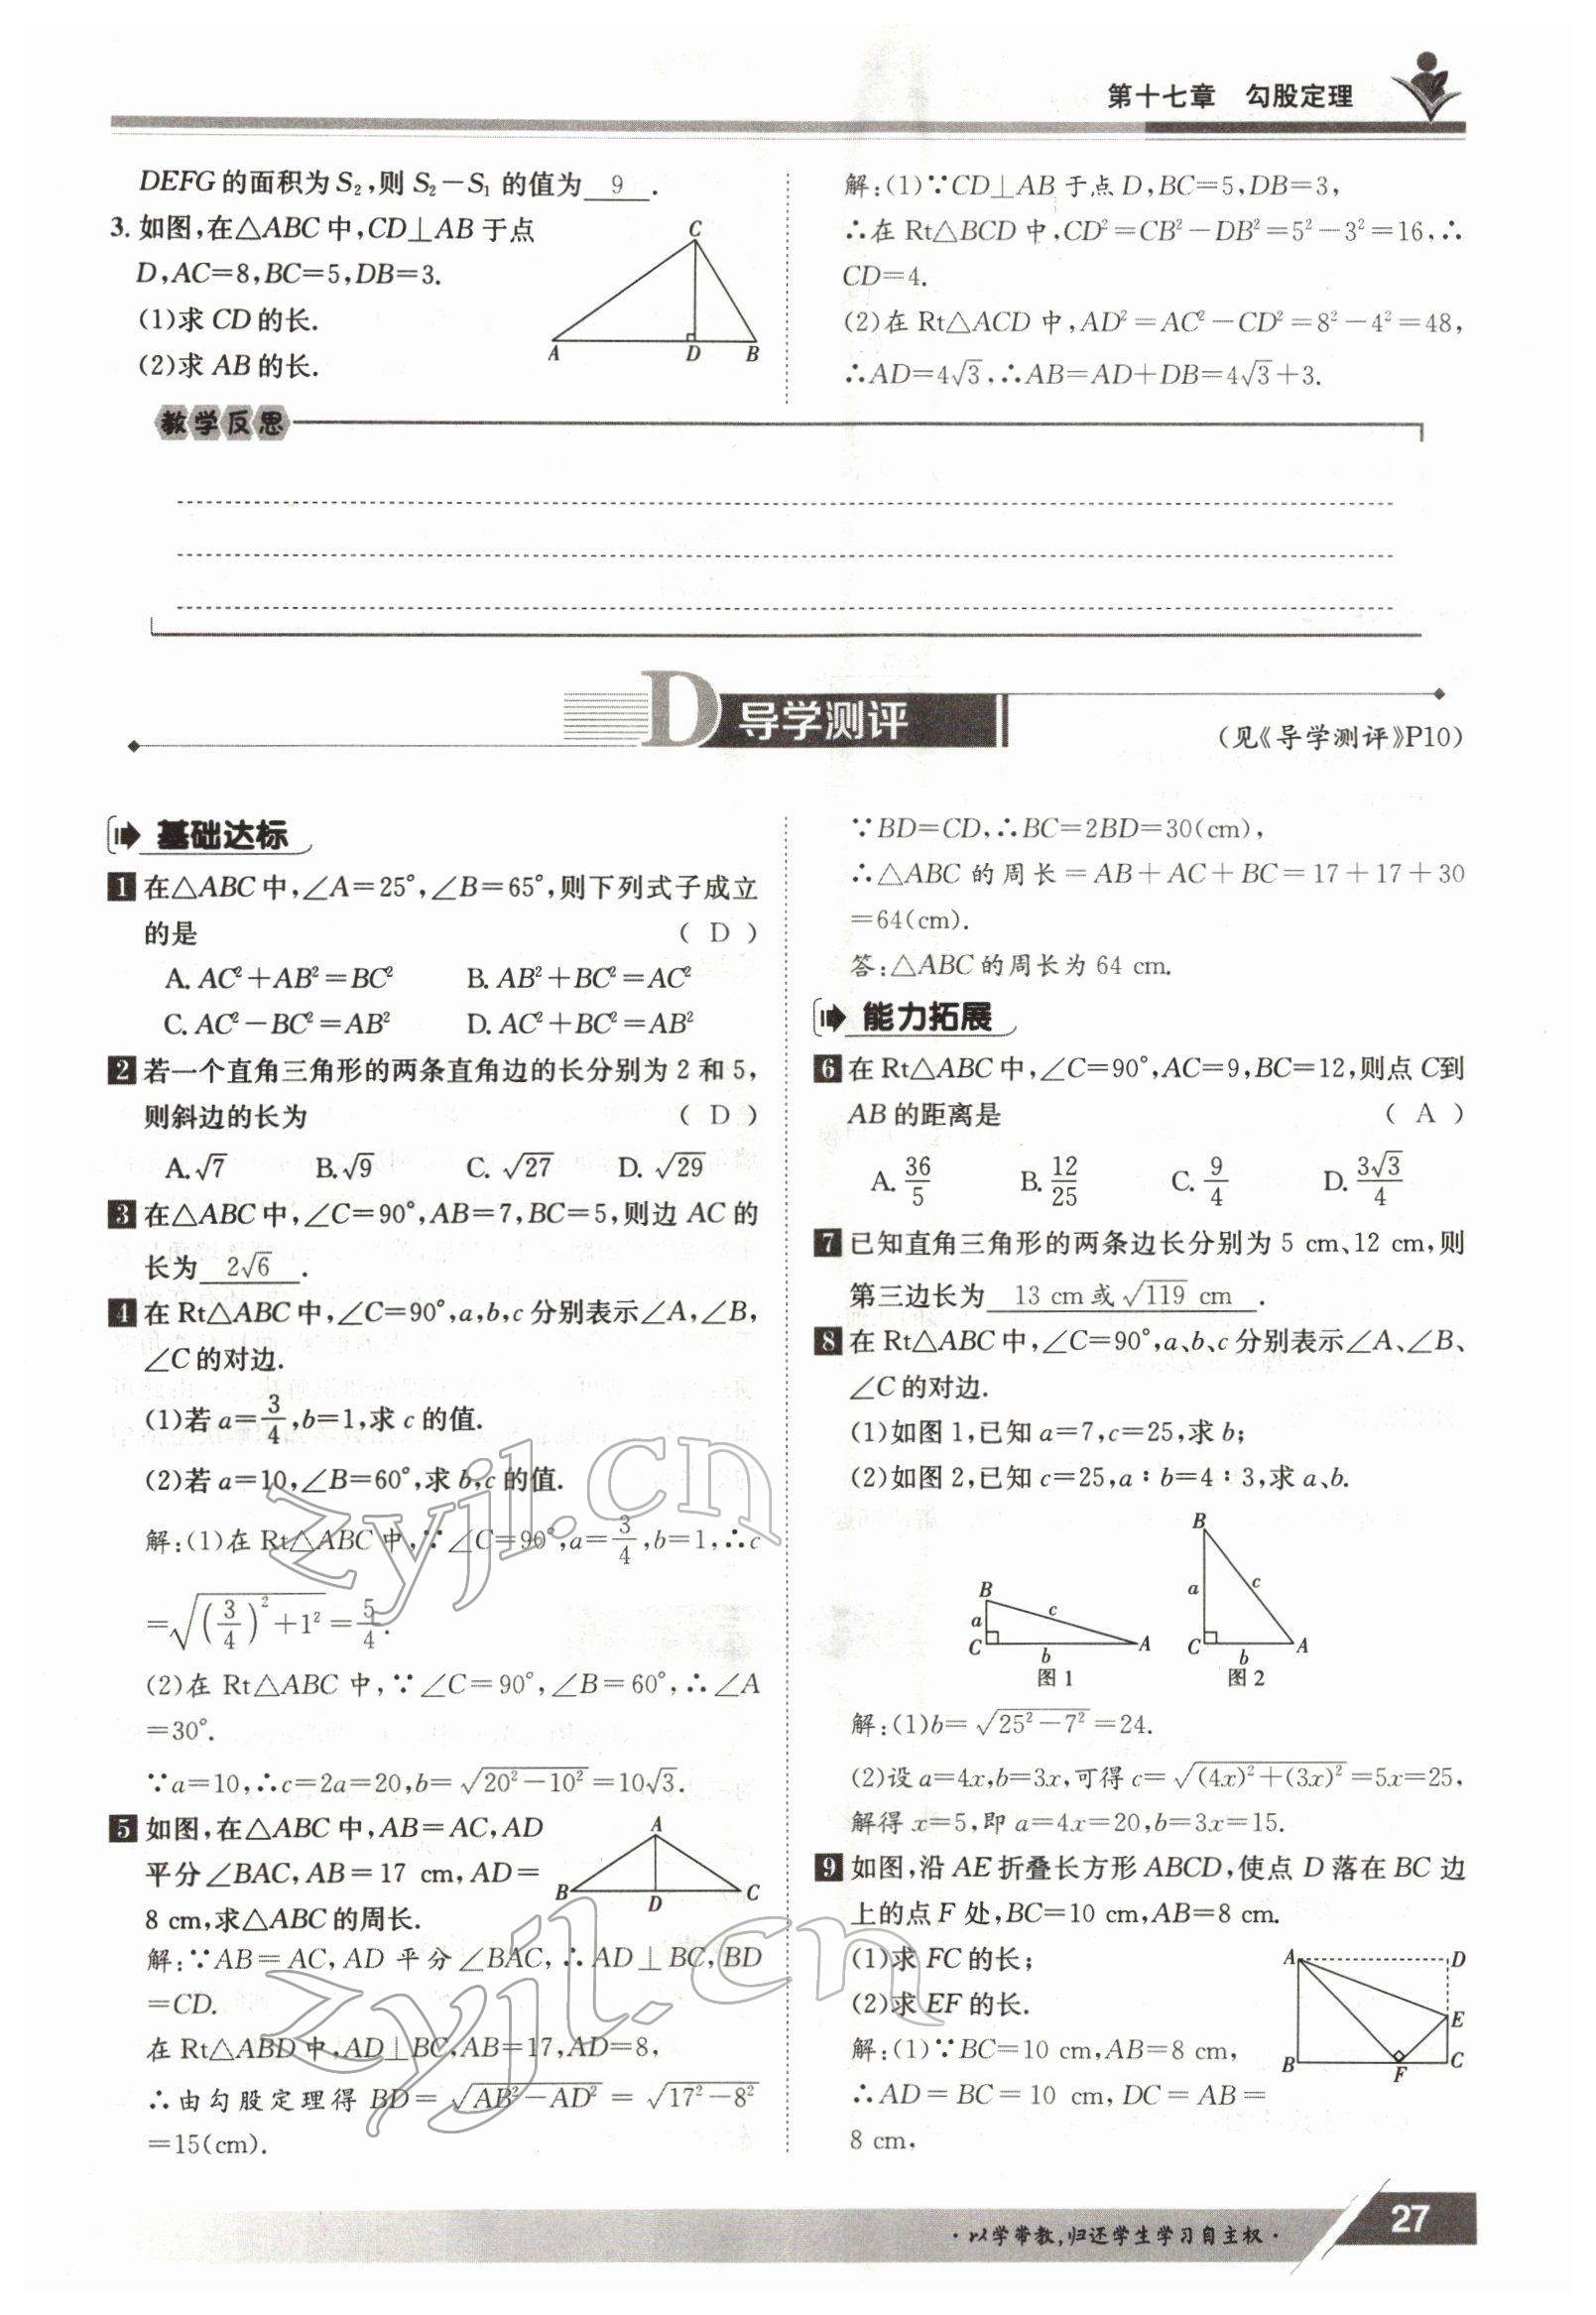 第十七章 勾股定理
DEFG的面积为S₂,则S₂-S₁的值为 9 .
3. 如图,在△ABC中,CD⊥AB于点
D,AC=8,BC=5,DB=3.
(1)求CD的长.
(2)求AB的长.
C
A D B
解:(1)∵CD⊥AB于点D,BC=5,DB=3,
∴在Rt△BCD中,CD²=CB²-DB²=5²-3²=16,∴
CD=4.
(2)在Rt△ACD中,AD²=AC²-CD²=8²-4²=48,
∴AD=4√3,∴AB=AD+DB=4√3+3.
教学反思
D 导学测评
(见《导学测评》P10)
基础达标
1 在△ABC中,∠A=25°,∠B=65°,则下列式子成立
的是 ( D )
A. AC²+AB²=BC² B. AB²+BC²=AC²
C. AC²-BC²=AB² D. AC²+BC²=AB²
2 若一个直角三角形的两条直角边的长分别为2和5,
则斜边的长为 ( D )
A.√7 B.√9 C. √27 D. √29
3 在△ABC中,∠C=90°,AB=7,BC=5,则边AC的
长为 2√6 .
4 在Rt△ABC中,∠C=90°,a,b,c分别表示∠A,∠B,
∠C的对边.
(1)若a=3/4,b=1,求c的值.
(2)若a=10,∠B=60°,求b,c的值.
解:(1)在Rt△ABC中,∵∠C=90°,a=3/4,b=1,∴c
=√((3/4)²+1²)=5/4.
(2)在Rt△ABC中,∵∠C=90°,∠B=60°,∴∠A
=30°.
∵a=10,∴c=2a=20,b=√(20²-10²)=10√3.
5 如图,在△ABC中,AB=AC,AD
平分∠BAC,AB=17 cm,AD=
8 cm,求△ABC的周长.
A
B D C
解:∵AB=AC,AD平分∠BAC,∴AD⊥BC,BD
=CD.
在Rt△ABD中,AD⊥BC,AB=17,AD=8,
∴由勾股定理得BD=√(AB²-AD²)=√(17²-8²)
=15(cm).
∵BD=CD,∴BC=2BD=30(cm),
∴△ABC的周长=AB+AC+BC=17+17+30
=64(cm).
答:△ABC的周长为64 cm.
能力拓展
6 在Rt△ABC中,∠C=90°,AC=9,BC=12,则点C到
AB的距离是 ( A )
A. 36/5 B. 12/25 C. 9/4 D. 3√3/4
7 已知直角三角形的两条边长分别为5 cm、12 cm,则
第三边长为 13 cm或√119 cm .
8 在Rt△ABC中,∠C=90°,a、b、c分别表示∠A、∠B、
∠C的对边.
(1)如图1,已知a=7,c=25,求b;
(2)如图2,已知c=25,a∶b=4∶3,求a、b.
B a c C b A
图1
B a c C b A
图2
解:(1)b=√(25²-7²)=24.
(2)设a=4x,b=3x,可得c=√((4x)²+(3x)²)=5x=25,
解得x=5,即a=4x=20,b=3x=15.
9 如图,沿AE折叠长方形ABCD,使点D落在BC边
上的点F处,BC=10 cm,AB=8 cm.
(1)求FC的长;
(2)求EF的长.
A D
E
B F C
解:(1)∵BC=10 cm,AB=8 cm,
∴AD=BC=10 cm,DC=AB=
8 cm,
zyjl.cn
zyjl.cn
·以学带教,归还学生学习自主权·
27